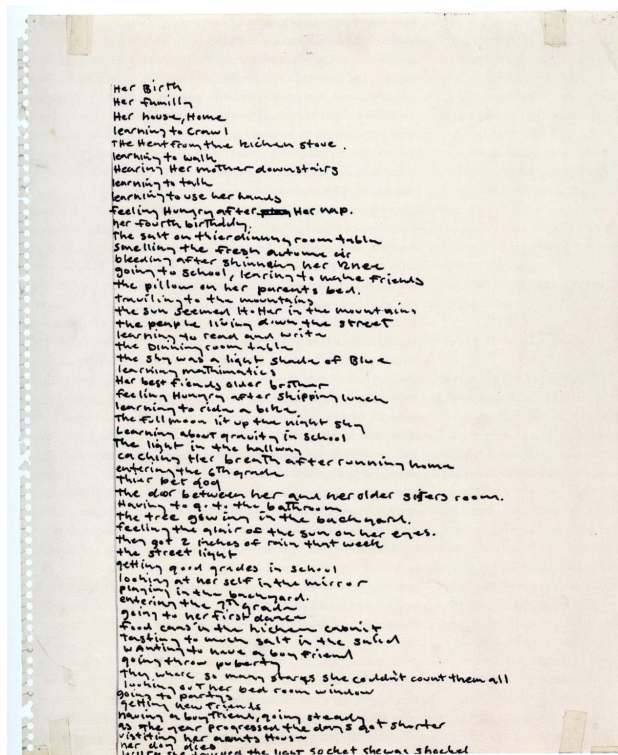 Her Birth
Her familly
Her house, Home
learning to Crawl
THe Heat from the kichen stove.
learning to walk
Hearing Her mother downstairs
learning to talk
learning to use her hands
feeling Hungry after Her nap.
her fourth birthday.
The salt on thier dinning room table
smelling the fresh autome air
bleeding after shinning her knee
going to school, learing to make friends
the pillow on her parents bed.
traviling to the mountains
the sun seemed HoTTer in the mountains
the people living down the street
learning to read and write
the Dinning room table
the sky was a light shade of Blue
learning mathimatics
Her best friends older brother
feeling Hungry after skipping lunch
learning to ride a bike.
The full moon lit up the night sky
Learning about gravity in school
The light in the hallway
catching Her breath after running home
entering the 6th grade
Thier pet dog
the door between her and her older sisters room.
Having to g. t. the bathroom
The tree gowing in the back yard.
feeling the glair of the sun on her eyes.
they got 2 inches of rain that week
the street light
getting good grades in school
looking at her self in the mirror
playing in the backyard.
entering the 7th grade
going to her first dance
food cans in the kichen cabnit
Tasting to much salt in the salad
wanting to have a boy friend
going throw puberty
They where so many stars she couldn't count them all
looking out her bed room window
going to partys
getting new friends
Having a boy friend, going steady
as the year progressed the days got shorter
vistiting her aants House
her dog dies
the light socket she was shocked